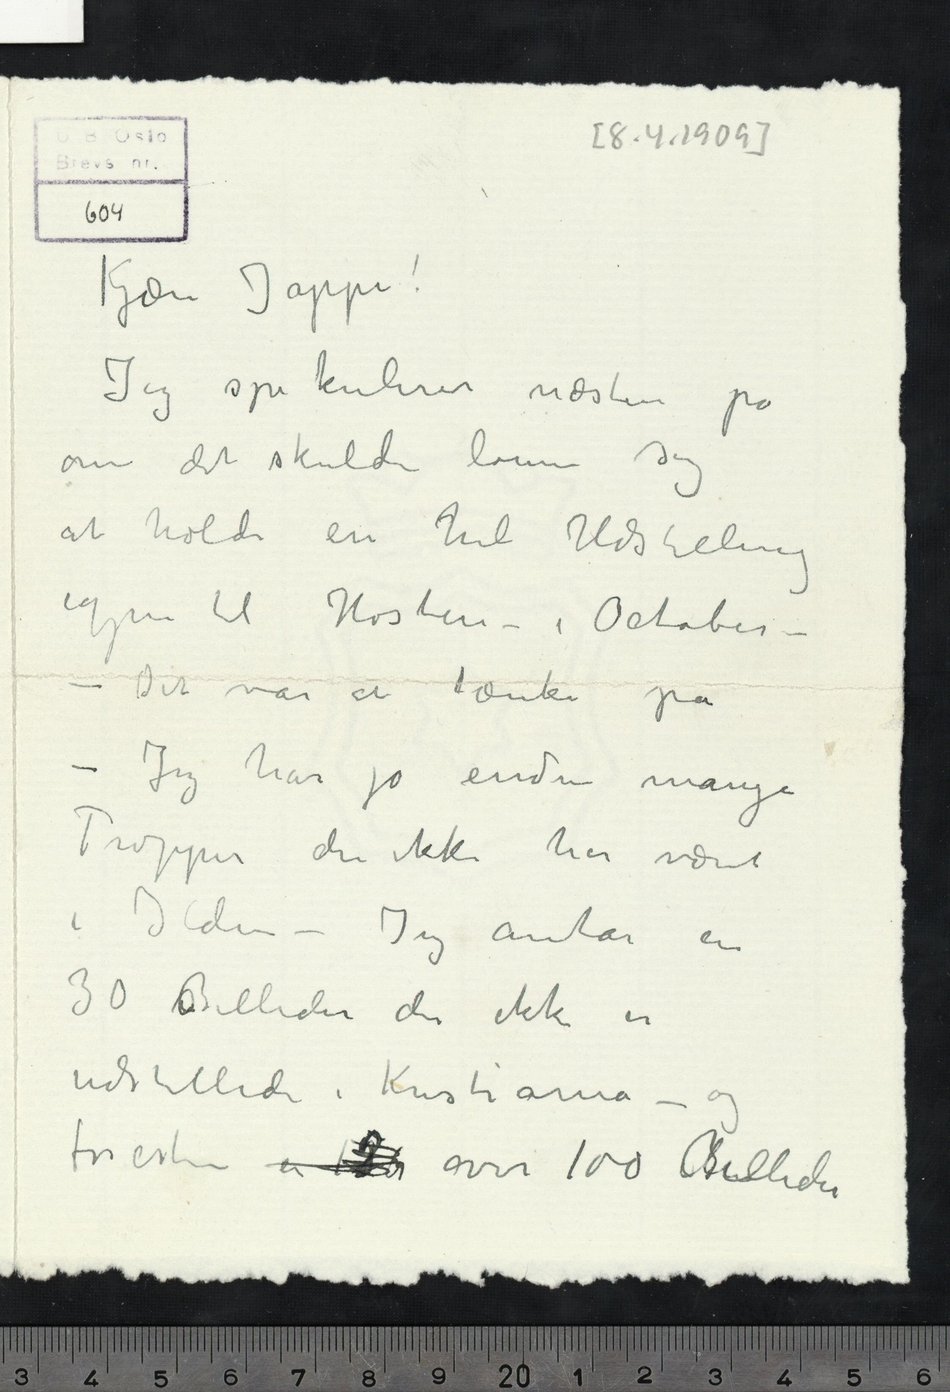 [8.4.1909]
U B Oslo
Brevs nr.
604
Kjære Jappe!
Jeg spekulerer næsten på
om det skulde lønne sig
at holde en hel Udstelling
igjen til Høsten – i October –
– Det var at tænke på
– Jeg har jo endnu mange
Tropper der ikke har været
i Ilden – Jeg antar en
30 Billeder der ikke er
udstillede i Kristiania – og
foresten over 100 Billeder
3 4 5 6 7 8 9 20 1 2 3 4 5 6